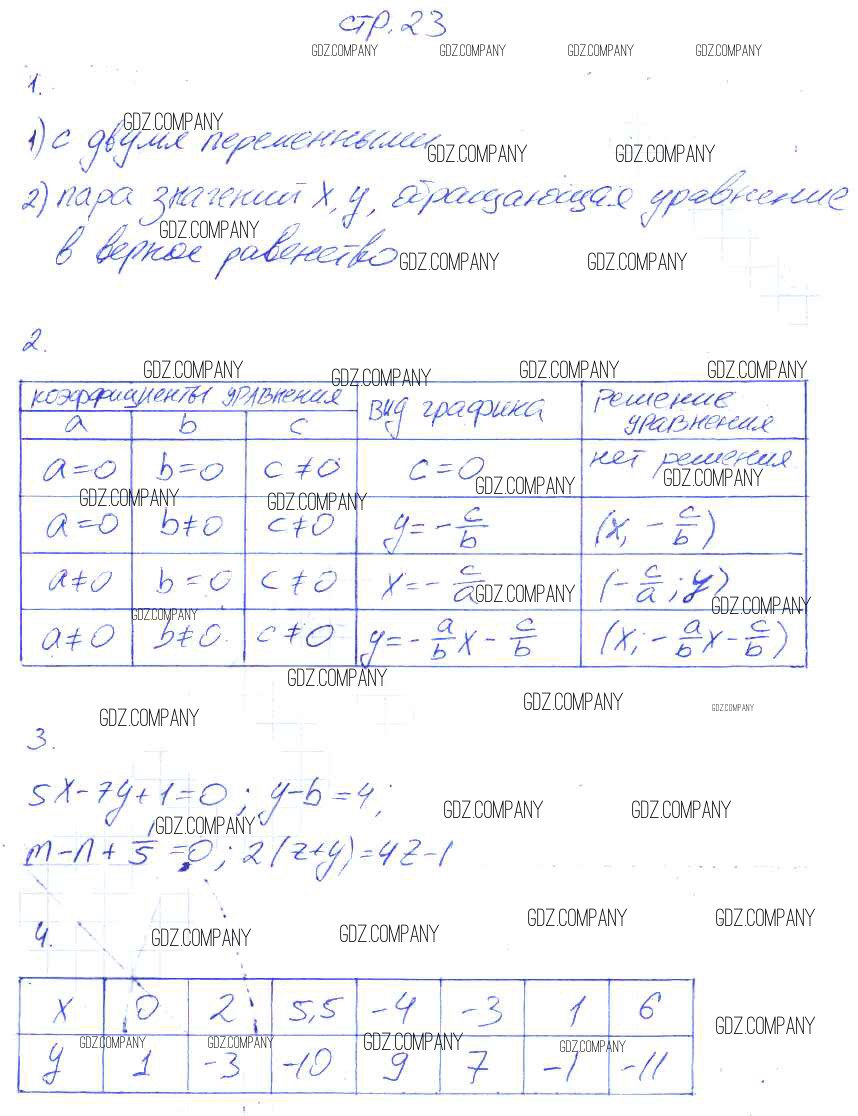 стр. 23
GDZ.COMPANY GDZ.COMPANY GDZ.COMPANY GDZ.COMPANY
1.
GDZ.COMPANY
1) с двумя переменными
GDZ.COMPANY GDZ.COMPANY
2) пара значений x, y, обращающая уравнение
GDZ.COMPANY
в верное равенство
GDZ.COMPANY GDZ.COMPANY
2.
GDZ.COMPANY GDZ.COMPANY GDZ.COMPANY GDZ.COMPANY
коэффициенты уравнения вид графика решение уравнения
a b c
a=0 b=0 c≠0 c=0 нет решения
GDZ.COMPANY GDZ.COMPANY GDZ.COMPANY GDZ.COMPANY
a=0 b≠0 c≠0 y=-c/b (x, -c/b)
a≠0 b=0 c≠0 x=-c/a (-c/a; y)
GDZ.COMPANY GDZ.COMPANY GDZ.COMPANY
a≠0 b≠0. c≠0 y=-a/b x - c/b (x; -a/b x - c/b)
GDZ.COMPANY GDZ.COMPANY GDZ.COMPANY
GDZ.COMPANY
3.
5x-7y+1=0; y-b=4;
GDZ.COMPANY GDZ.COMPANY
GDZ.COMPANY
m-n+1/5=0; 2(z+y)=4z-1
GDZ.COMPANY GDZ.COMPANY
4.
GDZ.COMPANY GDZ.COMPANY
x 0 2 5,5 -4 -3 1 6
GDZ.COMPANY
GDZ.COMPANY GDZ.COMPANY GDZ.COMPANY GDZ.COMPANY
y 1 -3 -10 9 7 -1 -11